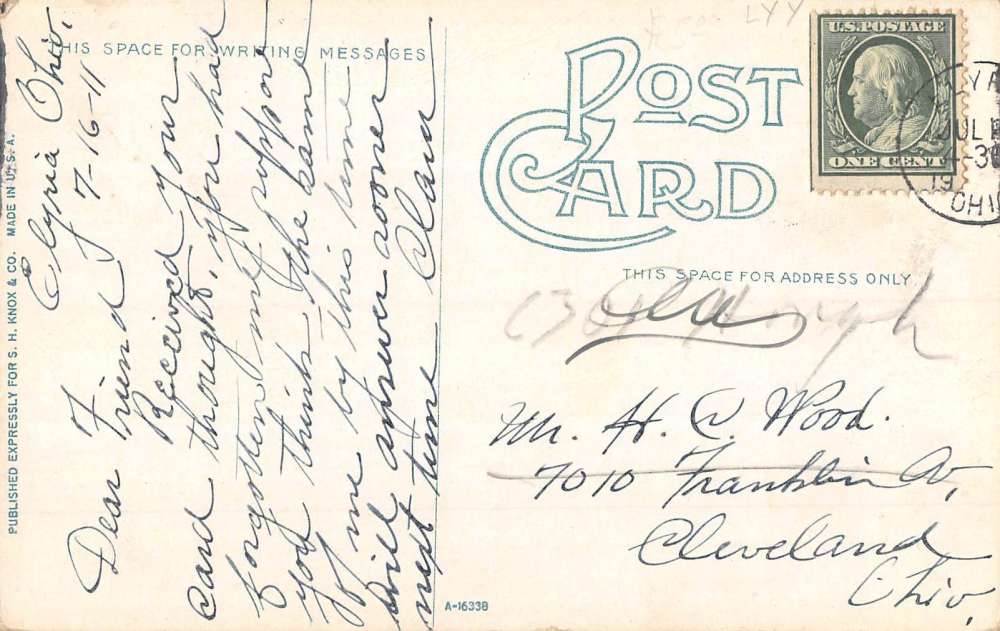 THIS SPACE FOR WRITING MESSAGES
POST
CARD
U.S. POSTAGE
ONE CENT
JUL
OHI
THIS SPACE FOR ADDRESS ONLY.
Elyria Ohio.
7-16-11
Dear Friend
Received your
card thought, you had
forgotten me I suppose
you think the same
of me by this time
will answer sooner
next time Clara
Mr. H. C. Wood.
7010 Franklin Av,
Cleveland
Ohio,
A-16338
PUBLISHED EXPRESSLY FOR S. H. KNOX & CO. MADE IN U.S.A.